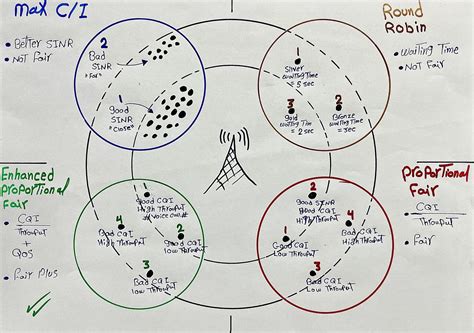 Max C/I
• Better SINR
• Not Fair
2
Bad
SINR
"Far"
1
good
SINR
"Close"
Round
Robin
• Waiting Time
• Not Fair
1
Silver
Waiting Time
= 5 sec
3
gold
Waiting Tim
= 2 sec
2
Bronze
Waiting Time
Enhanced
Proportional
Fair
• CQI
Throuput
+
QoS
• Fair Plus
1
Good CQI
High Throuput
4
Bad CQI
High Throuput
2
Good CQI
low Throuput
3
Bad CQI
low Throuput
Proportional
Fair
• CQI
Throuput
• Fair
2
Good SINR
High Throuput
4
Bad CQI
High Throuput
1
Good CQI
Low Throuput
3
Bad CQI
low Throuput